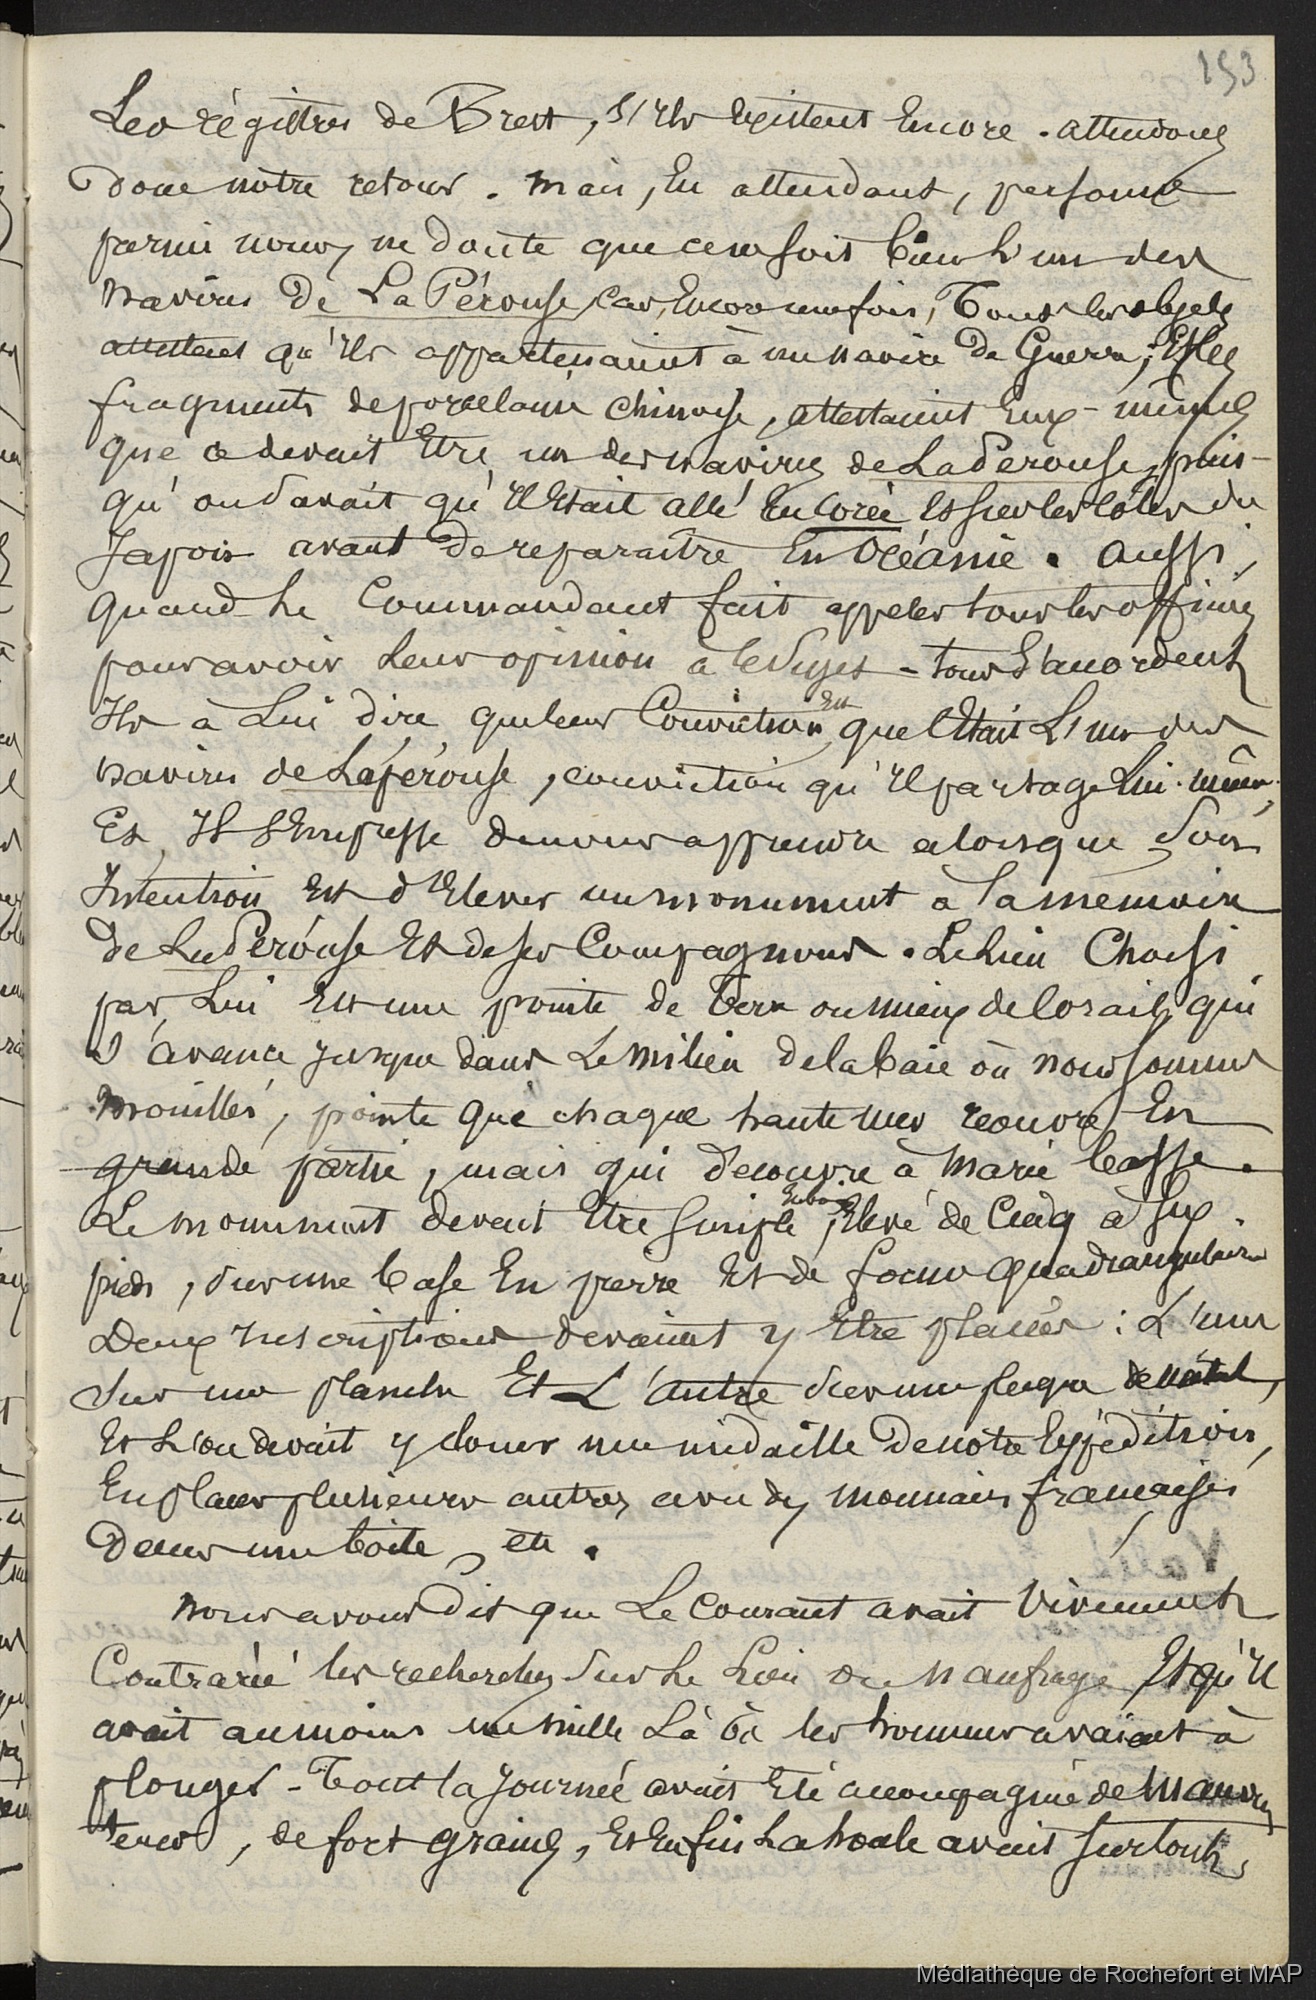 153
Les régistres de Brest, s'ils existent encore. attendons
donc notre retour. mais, En attendant, personne
parmi nous, ne doute que ce ne soit bien L'un des
navires De La Pérouse, car, Encore une fois, Tous les objets
attestent qu'ils appartenaient à un navire De Guerre; Et les
fragments de porcelaine chinoise, attestaient Eux-mêmes
que ce devait Etre un des navires de La Pérouse, puis-
qu'on savait qu'il était allé En Corée et sur les côtes du
Japon avant De reparaitre En Océanie. aussi,
quand Le Commandant fait appeler tous les officiers
pour avoir Leur opinion à ce sujet - tous s'accordent
Ils à Lui dire que leur Conviction Est que c'Etait L'un des
navires de Lapérouse, conviction qu'il partage Lui-même,
Et Il s'Empresse de nous apprendre alors que Son
Intention Est d'Elever un monument à La mémoire
de La Pérouse Et de ses Compagnons. Le Lieu Choisi
par Lui Est une pointe de Terre ou mieux de Corail, qui
s'avance Jusque dans Le milieu de la baie où nous sommes
mouillés, pointe que chaque haute mer recouvre En
grande partie, mais qui découvre à marée basse.
Le monument devait Etre simple, Elevé de Cinq à six
pieds, sur une base En pierre Et de forme quadrangulaire
Deux Inscriptions devaient y Etre placées : L'une
sur une planche Et L'autre sur une plaque de métal,
Et L'on devait y clouer une médaille De notre Expédition,
En placer plusieurs autres avec des monnaies françaises
Dans une boîte, etc.
Nous avons Dit que Le Courant avait Vivement
Contrarié les recherches sur Le Lieu du naufrage Et qu'il
avait au moins un mille Là où les hommes avaient à
plonger - Tout la Journée avait Eté accompagnée de mauvais
tems, de fort grains, Et Enfin La houle avait surtout,
Médiathèque de Rochefort et MAP